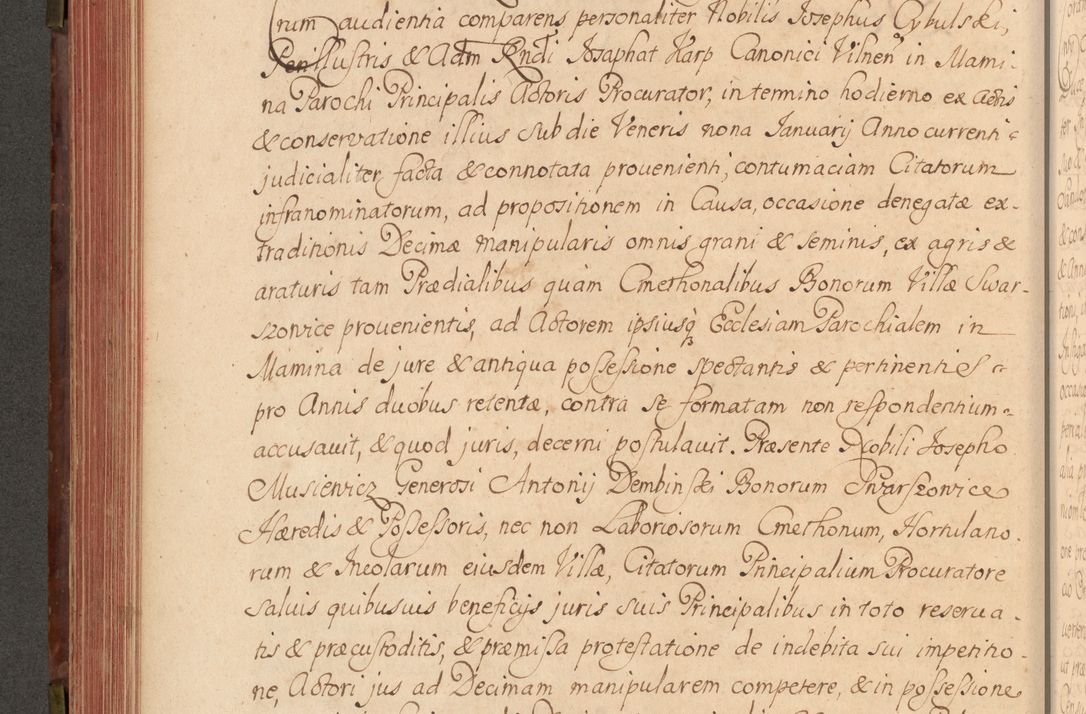 rum audientia comparens personaliter Nobilis Josephus Cybulski,
Perillustris & Adm Rndi Josaphat Karp Canonici Vilnen in Mami-
na Parochi Principalis Actoris Procurator, in termino hodierno ex actis
& conservatione illius sub die Veneris nona Januarij Anno currenti
judicialiter facta & connotata provenienti, contumaciam Citatorum
infranominatorum, ad propositionem in Causa, occasione denegatæ ex-
traditionis Decimæ manipularis omnis grani & seminis, ex agris &
araturis tam Prædialibus quàm Cmethonalibus Bonorum Villæ Swar-
szowice prouenientis, ad Actorem ipsiusq Ecclesiam Parochialem in
Mamina de jure & antiqua possessione spectantis & pertinentis
pro Annis duobus retentæ, contra se formatam non respondentium
accusavit, & quod juris, decerni postulavit. Præsente Nobili Josepho
Musiewicz Generosi Antonij Dembinski Bonorum Swarszowice
Hæredis & Possessoris, nec non Laboriosorum Cmethonum, Hortulano-
rum & Incolarum eiusdem Villæ, Citatorum Principalium Procuratore
salvis quibusvis beneficijs juris suis Principalibus in toto reserva-
tis & præcustoditis, & præmissa protestatione de indebita sui impetitio-
ne, Actori jus ad Decimam manipularem competere, & in possessione